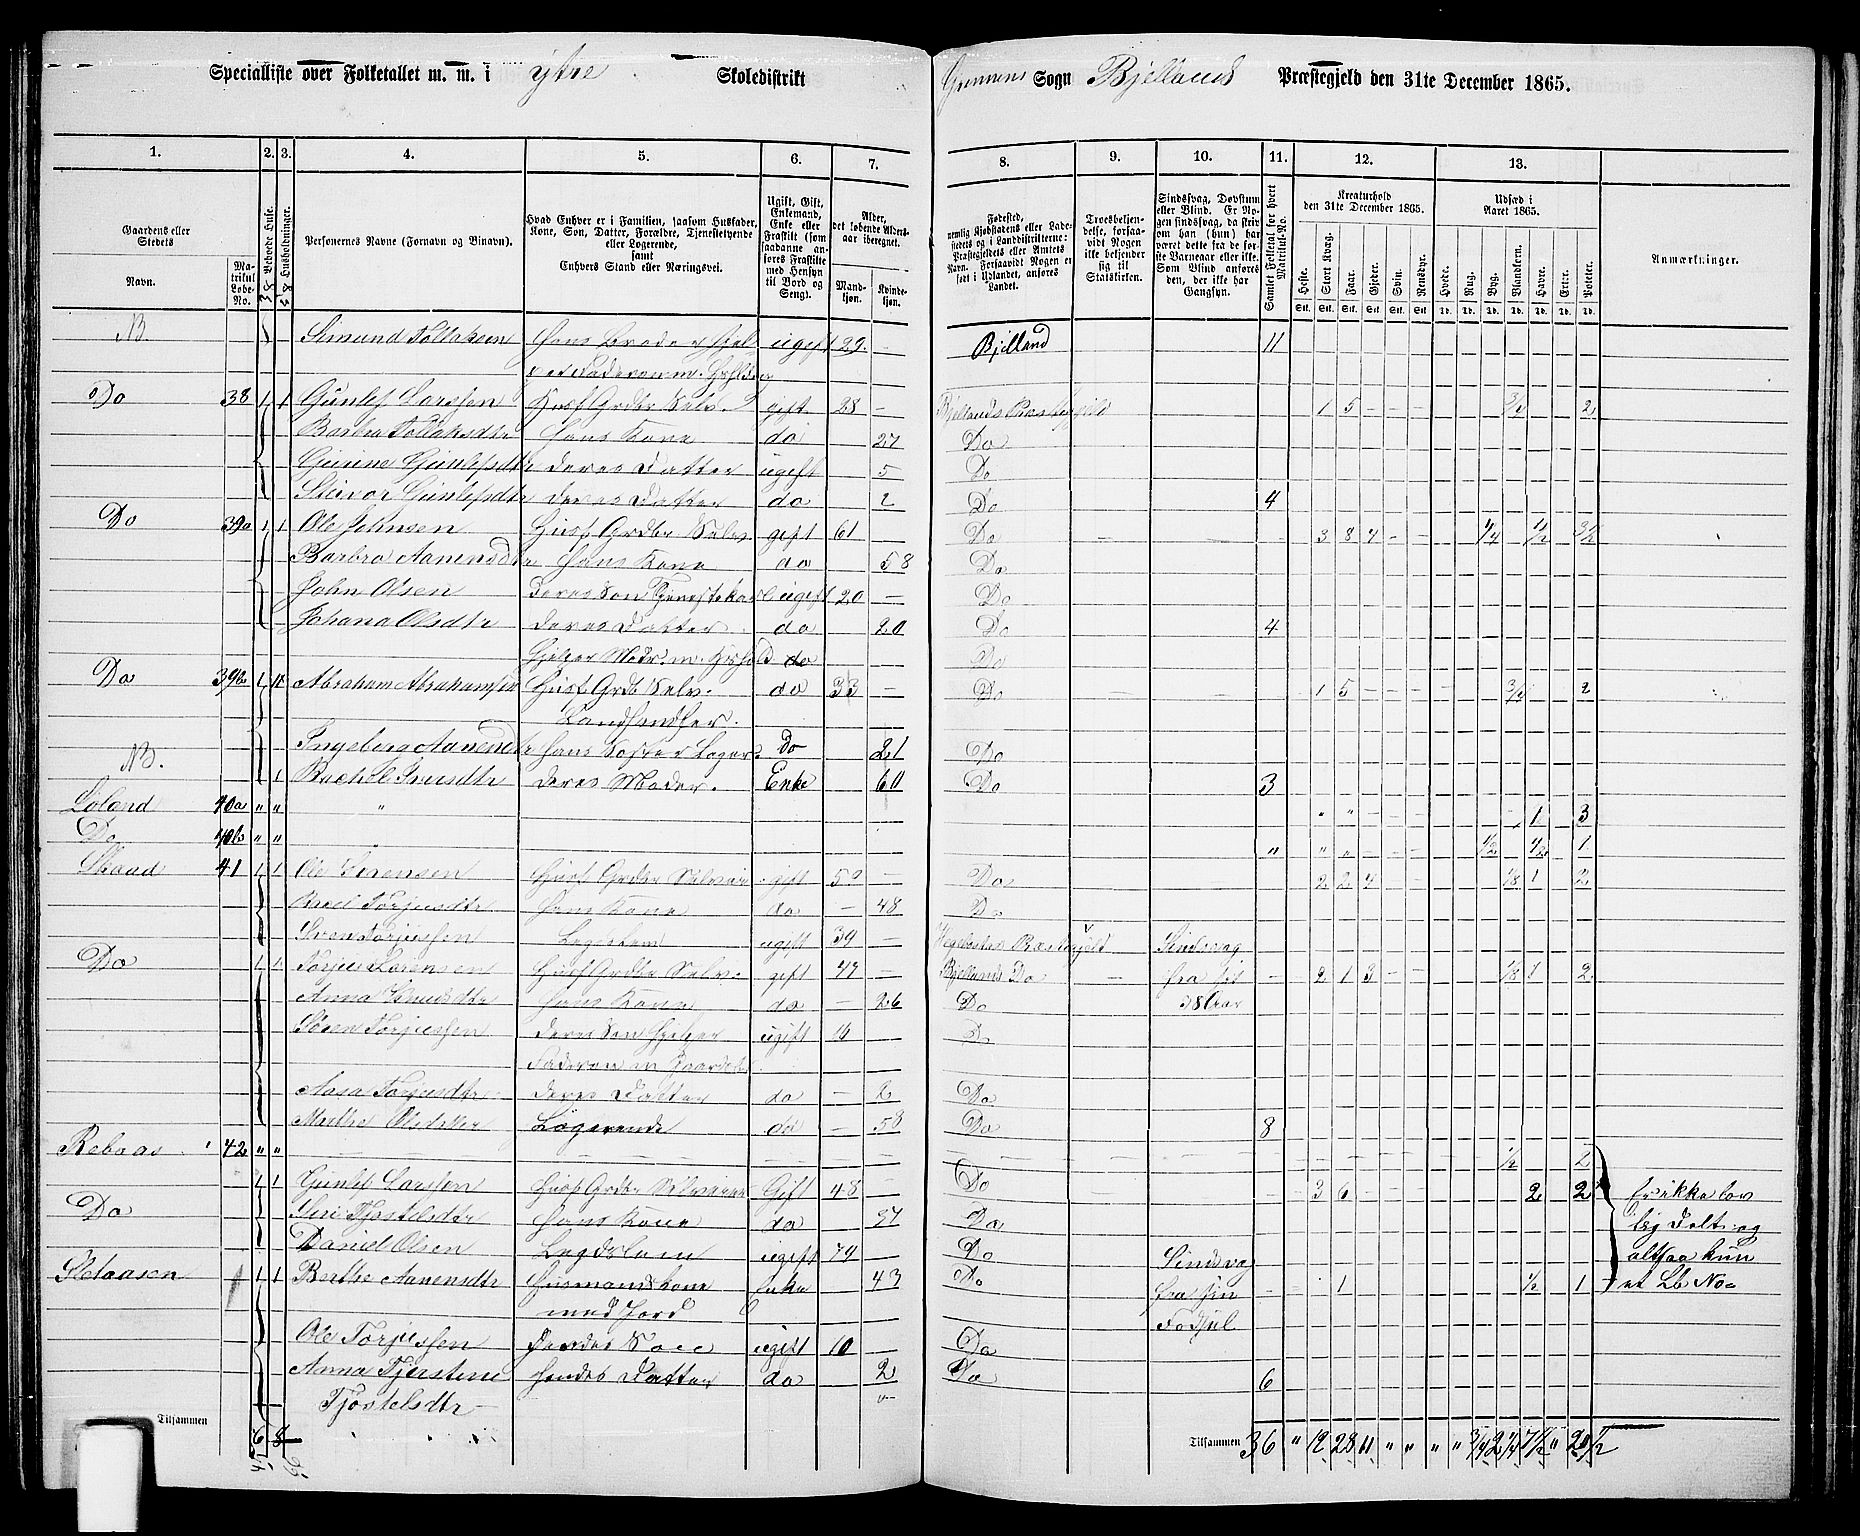 Specialliste over Folketallet m. m. i ytre Skoledistrikt
Grenens Sogn Bjellands Præstegjeld den 31te December 1865.
1. 2. 3. 4. 5. 6. 7. 8. 9. 10. 11. 12. 13.
Gaardens eller Stedets
Navn.
Matrikul Løbe-No.
Beboede Huse.
Husholdninger.
Personernes Navne (Fornavn og Binavn).
Hvad Enhver er i Familien, saasom Husfader, Kone, Søn, Datter, Forældre, Tjenestetyende eller Logerende, samt Enhvers Stand eller Næringsvei.
Ugift, Gift, Enkemand, Enke eller Fraskilt (som saadanne anføres Fraskilte med Hensyn til Bord og Seng).
Alder, det løbende Aldersaar iberegnet.
Mandkjøn. Kvindekjøn.
Fødested, nemlig Kjøbstadens eller Ladestedets og i Landdistrikterne: Præstegjeldets eller Amtets Navn. Forsaavidt Nogen er født i Udlandet, anføres Landet.
Troesbekjendelse, forsaavidt Nogen ikke bekjender sig til Statskirken.
Sindssvag, Døvstum eller Blind. Er Nogen sindssvag, da skrives om han (hun) har været dette fra de første Barneaar eller ikke. Som Blind anføres den, der ikke har Gangsyn.
Samlet Folketal for hvert Matrikul-No.
Kreaturhold den 31te December 1865.
Heste. Stort Kvæg. Faar. Gjeder. Svin. Rensdyr.
Udsæd i Aaret 1865.
Hvede. Rug. Byg. Blandkorn. Havre. Erter. Poteter.
Anmærkninger.
Simund Tollaksen hans Broder ugift 29 - Bjelland 11
Do 38 1 1 Gunlef Larssen Husf Grdbr Selv. gift 28 - Bjellands Præstegjeld 1 5 - - - 3/4 2
Barbra Tollaksdtr hans Kone do 27 Do
Gunlefsdtr deres Datter ugift 5 Do
Gunlefsdtr deres Datter do 2 Do 4
Do 39a 1 1 Ole Johnsen Husf Grdbr Selv. gift 61 Do 3 8 4 - - 1/4 1/2 3 1/2
Barbra Aanensdtr hans Kone do 58 Do
John Olsen deres Søn ugift 20 - Do
Johana Olsdtr deres Datter do 20 Do 4
do Do
Do 39b 1 1 Abraham Abrahamsen Husf Grdb Selv. do 33 - Do 1 5 - - - 3/4 2
Landhandler.
Ingeborg Aanensdtr hans Søster Do 21 Do
Rachel deres Moder. Enke 60 Do 3
Loland 40a " " " " " - 1 3
Do 40b " " " " " " - - 1/2 1/2 1
Skaad 41 1 1 Ole Sørensen Husf Grdbr gift - Do 2 2 4 - - 1/8 1 2
Torjusdtr hans Kone do - 48 Do
Sven Torjussen Legdslem ugift 39 - Præstegjeld Sindssvag
Do 1 1 Torjus Sørensen Husf Grdbr Selv. gift 47 - Bjellands Do - fra sit - 2 1 3 - - 1/8 1 2
Anna hans Kone do - 26 Do 28 Aar
Søren Torjussen deres Søn hjelper ugift 14 Do
Faderen m Gaardsbr
Aasa Torjusdtr deres Datter do - 2 Do
Marthe Logerende do - 58 Do 8
Rebaas 42 " " 1/2 2
1 1 Gunlef Larssen Husf Grdbr Selveier Gift 48 - Do 3 6 2 2 er ikke
Do Siri Tjostelsdtr hans Kone do 37 Do
Daniel Olsen Legdslem ugift 79 - Do Sindsvag altsaa kun
1 1 Berthe Aanensdtr Husmandskone Enke 43 Do fra sin - 1 1/2 1 et Lb No
med Jord Fødsel
Ole Torjussen hendes Søn ugift 10 Do
Anna hendes Datter do 2 Do 6
Tjostelsdtr
Tilsammen 6 8
Tilsammen 36 " 12 28 11 " " " " 3/4 2 1/4 7 1/2 " 20 1/2